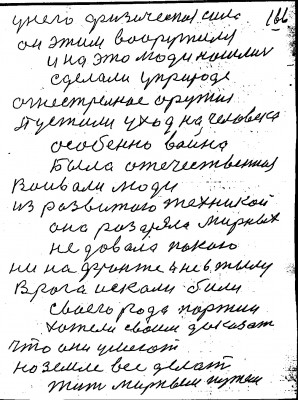 166
у него физическая сила
он этим вооружился
и на это люди пошли
сделали у природе
огнестрелное оружия
пустили уход на человека
особенно война
была отечественная
Воивали люди
из развитого техникой
она разаряла мирных
не довала покою
ни на фронте и не в тылу
Врага искали были
своего рода партии
хотели своим доказат
что они умеют
на земле все делат
жит мирным путем